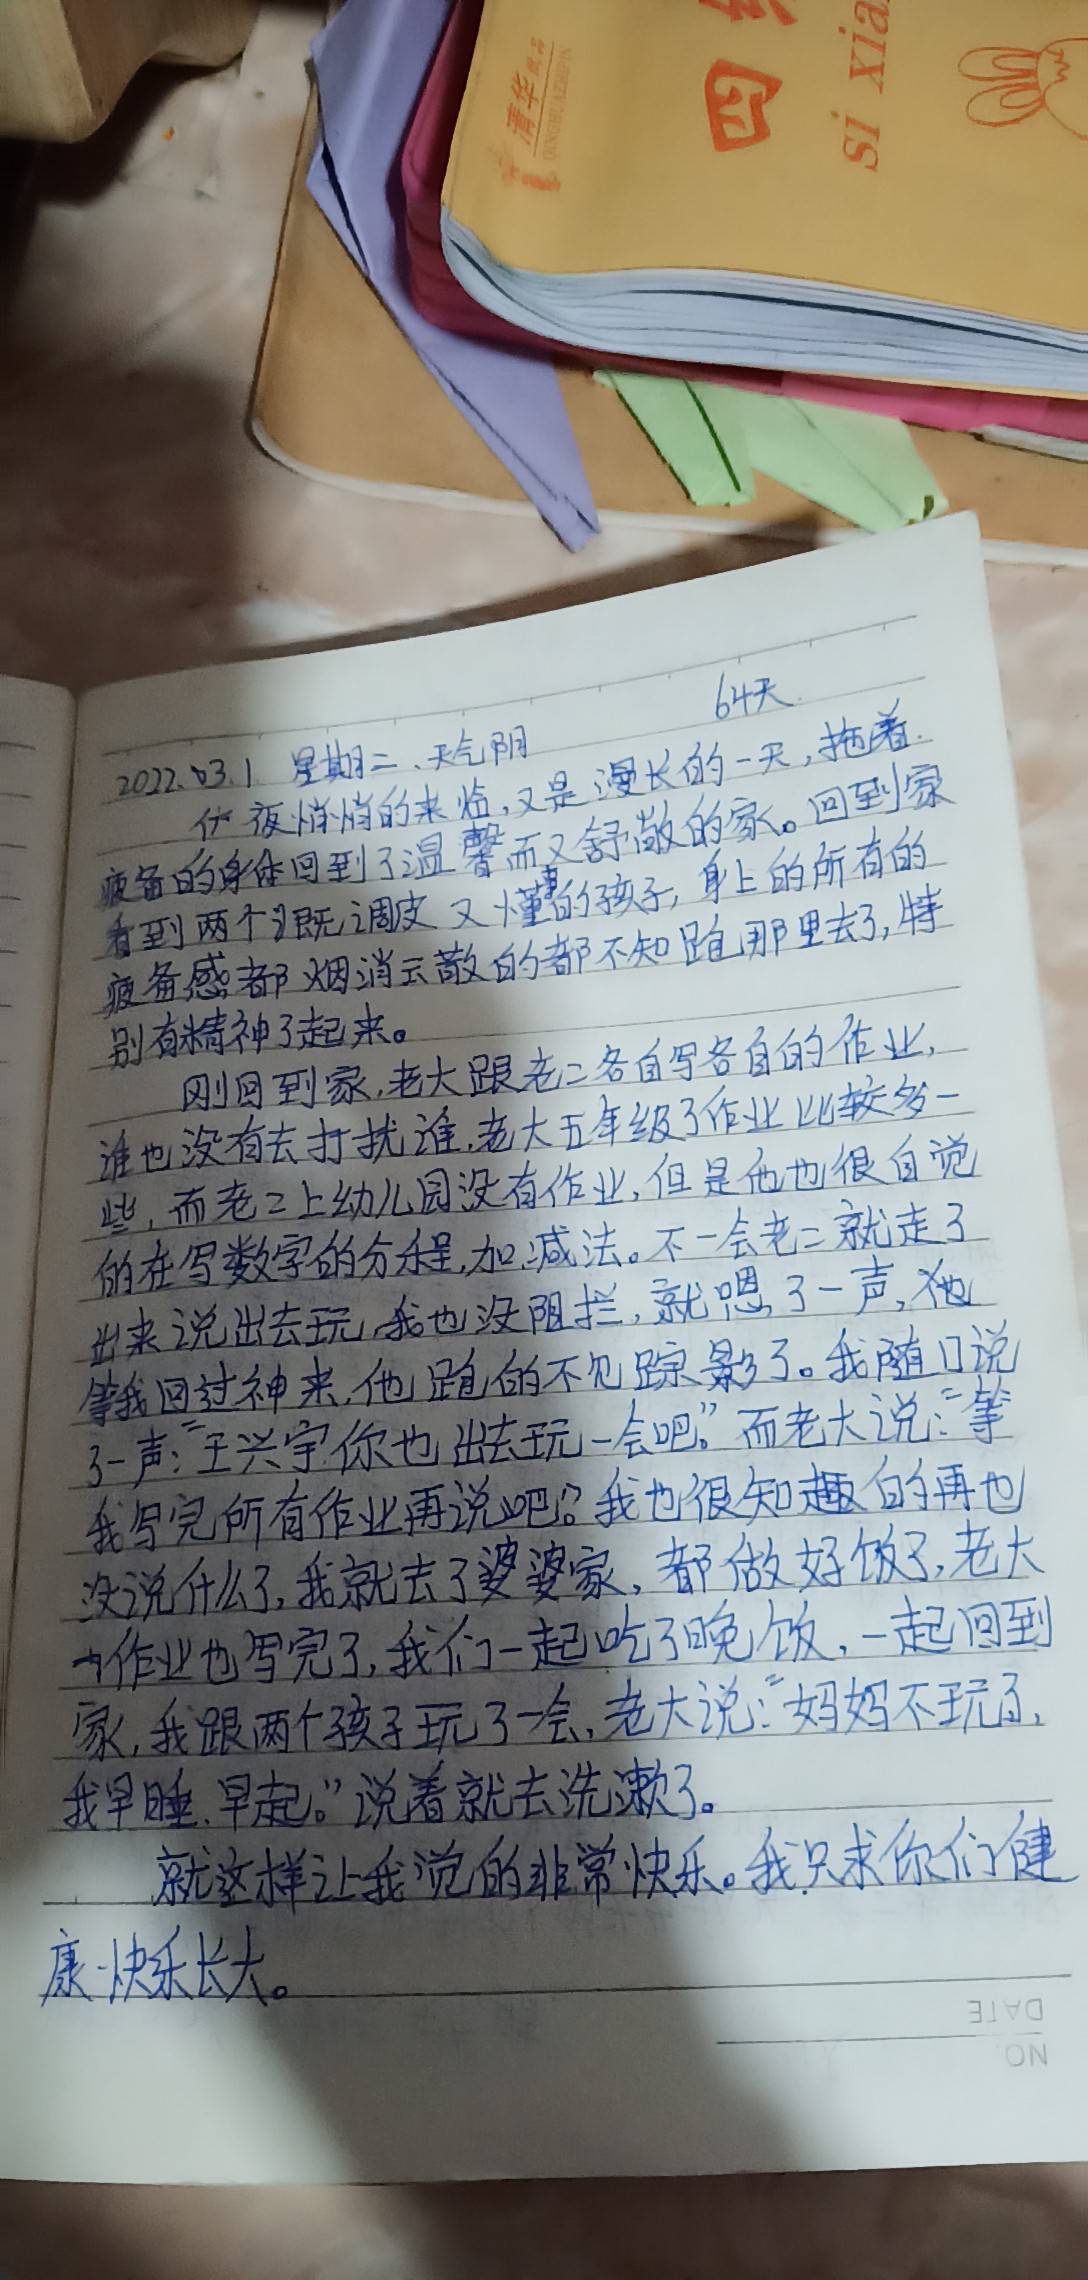 清华纸品
QINGHUAZHIPIN
四线
si xia
64天
2022.03.1 星期二、天气阴
夜悄悄的来临,又是漫长的一天,拖着
疲备的身体回到了温馨而又舒敞的家。回到家
看到两个既调皮又懂事的孩子,身上的所有的
疲备感都烟消云散的都不知跑那里去了,特
别有精神了起来。
刚回到家,老大跟老二各自写各自的作业,
谁也没有去打扰谁,老大五年级了作业比较多一
些,而老二上幼儿园没有作业,但是他也很自觉
的在写数字的分程,加、减法。不一会老二就走了
出来说出去玩,我也没阻拦,就嗯了一声,他
等我回过神来,他跑的不见踪影了。我随口说
了一声:“王兴宇你也出去玩一会吧。”而老大说:“等
我写完所有作业再说吧。”我也很知趣的再也
没说什么了,我就去了婆婆家,都做好饭了,老大
作业也写完了,我们一起吃了晚饭,一起回到
家,我跟两个孩子玩了一会,老大说:“妈妈不玩了,
我早睡、早起。”说着就去洗漱了。
就这样让我觉的非常快乐。我只求你们健
康快乐长大。
DATE
NO.